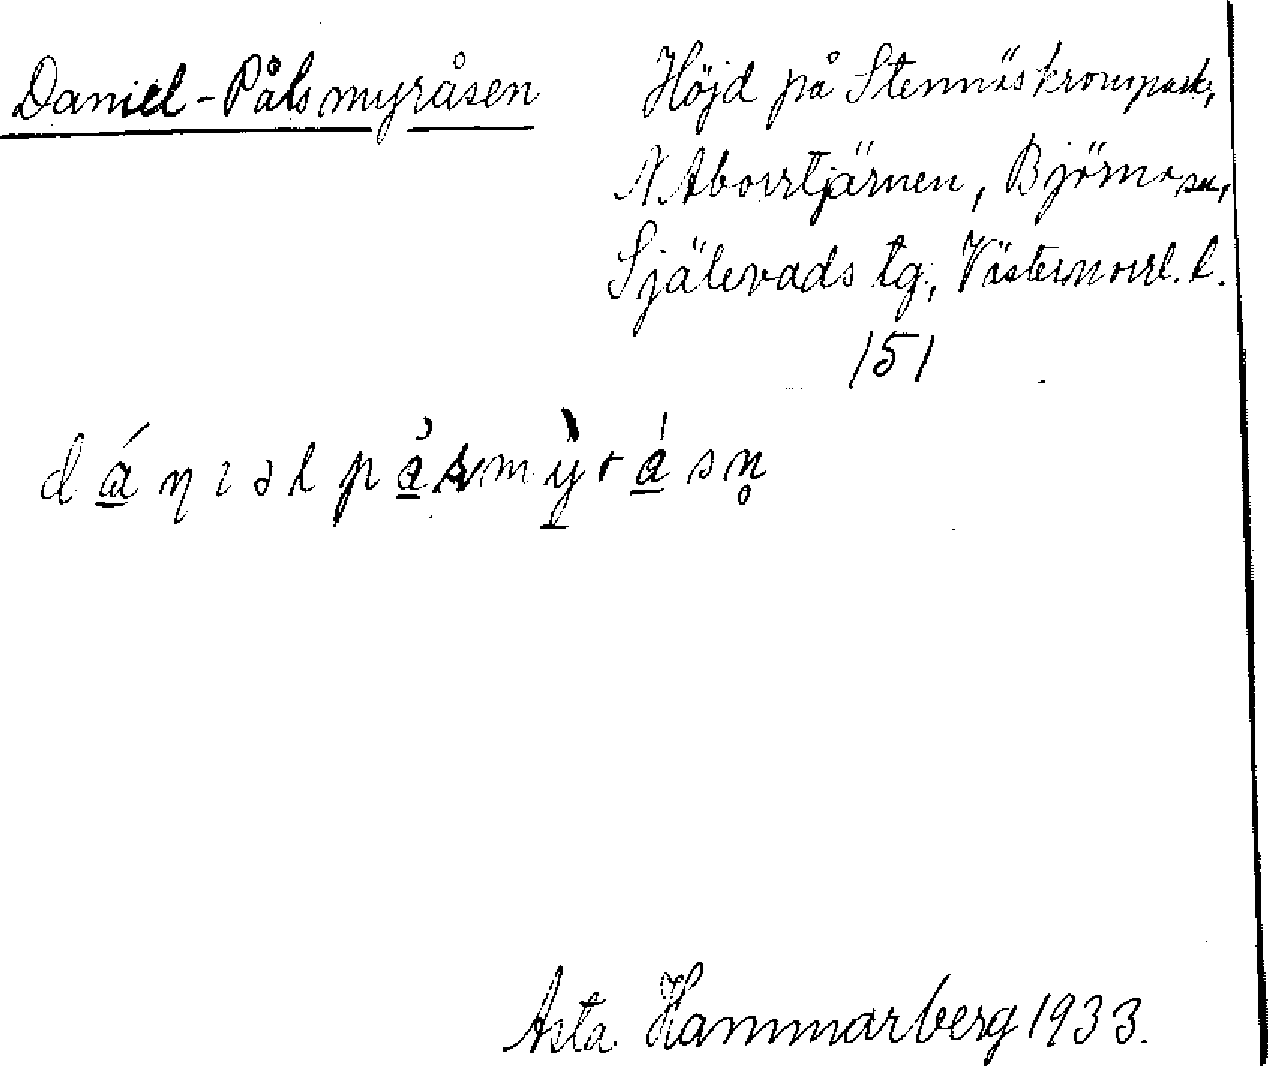 Daniel-Pålsmyråsen
Höjd på Stennäs kronopark,
N Aborrtjärnen, Björna sn,
Själevads tg., Västernorrl. l.
151
Asta Hammarberg 1933.